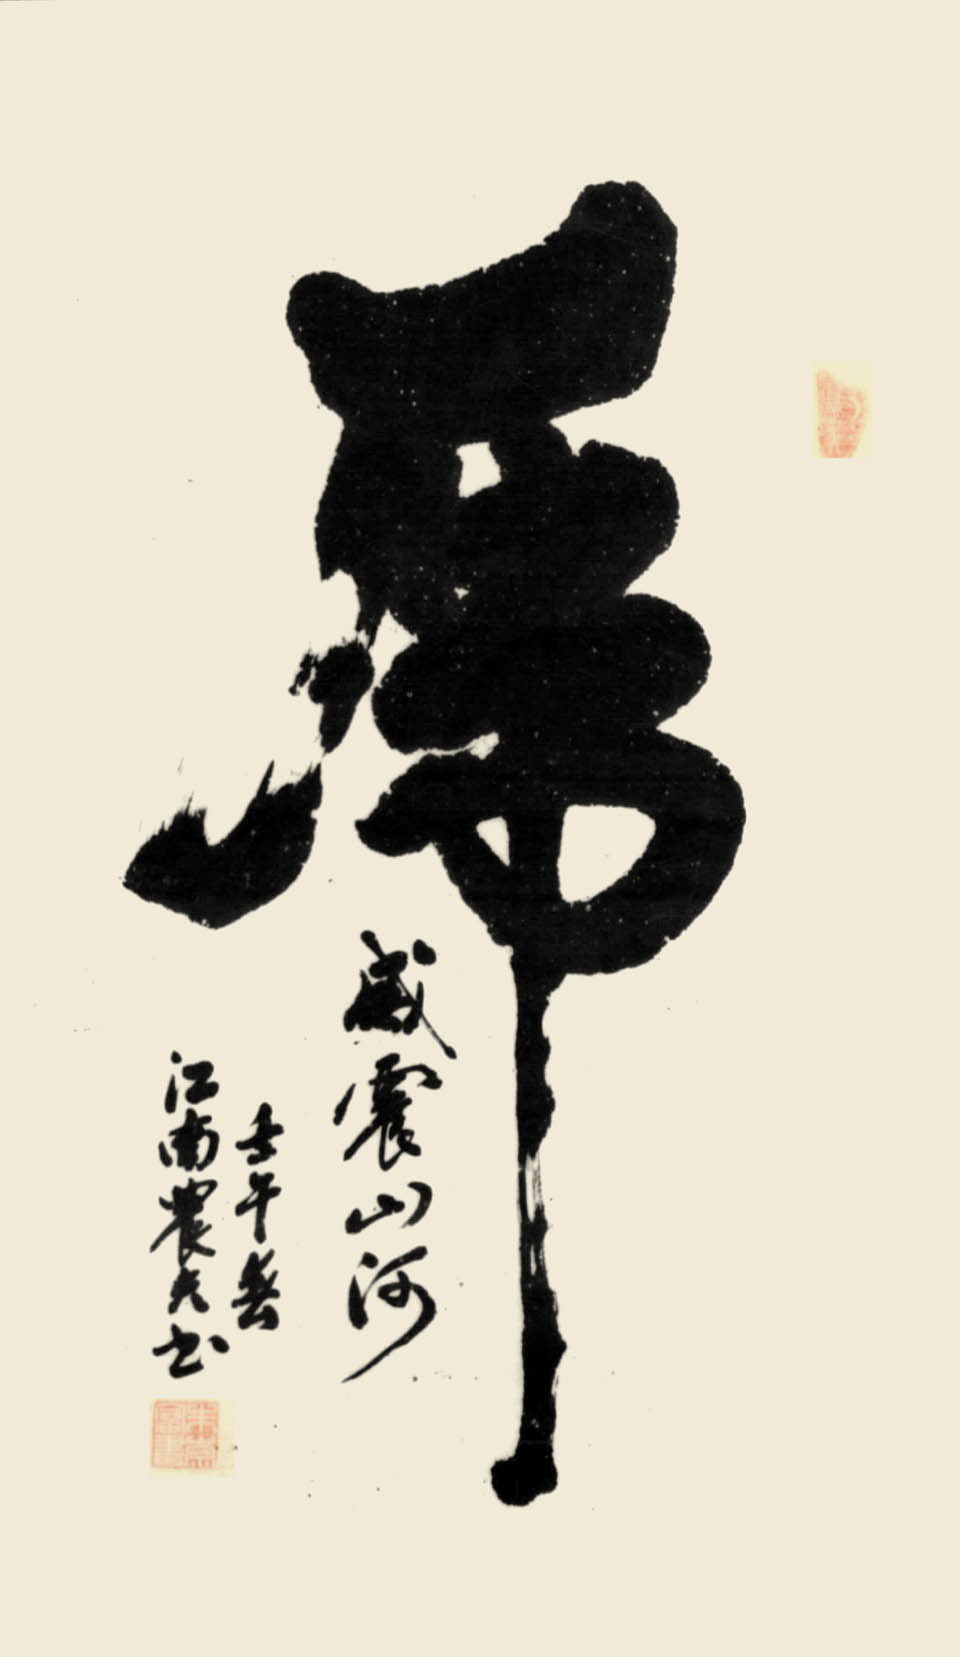 虎
威震山河
壬午春
江南農夫书